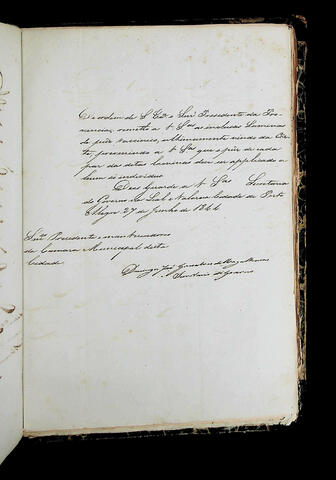 De ordem de S. Exª o Snr. Presidente da Pro-
vincia, remetto a V. Sas as inclusas Laminas
de puz vaccinico, ultimamente vindo da Cor-
te, prevenindo a V. Sas que o puz de cada
par das ditas laminas deve ser applicado a
hum só individuo.
Deos Guarde a V. Sas Secretaria
do Governo na Leal e Valerosa Cidade de Porto
Alegre 27 de Junho de 1844
Snrs. Presidente e mais Vereadores
da Camara Municipal desta
Cidade.
Domingos José Gonçalves de Magalhaens
Secretario do Governo